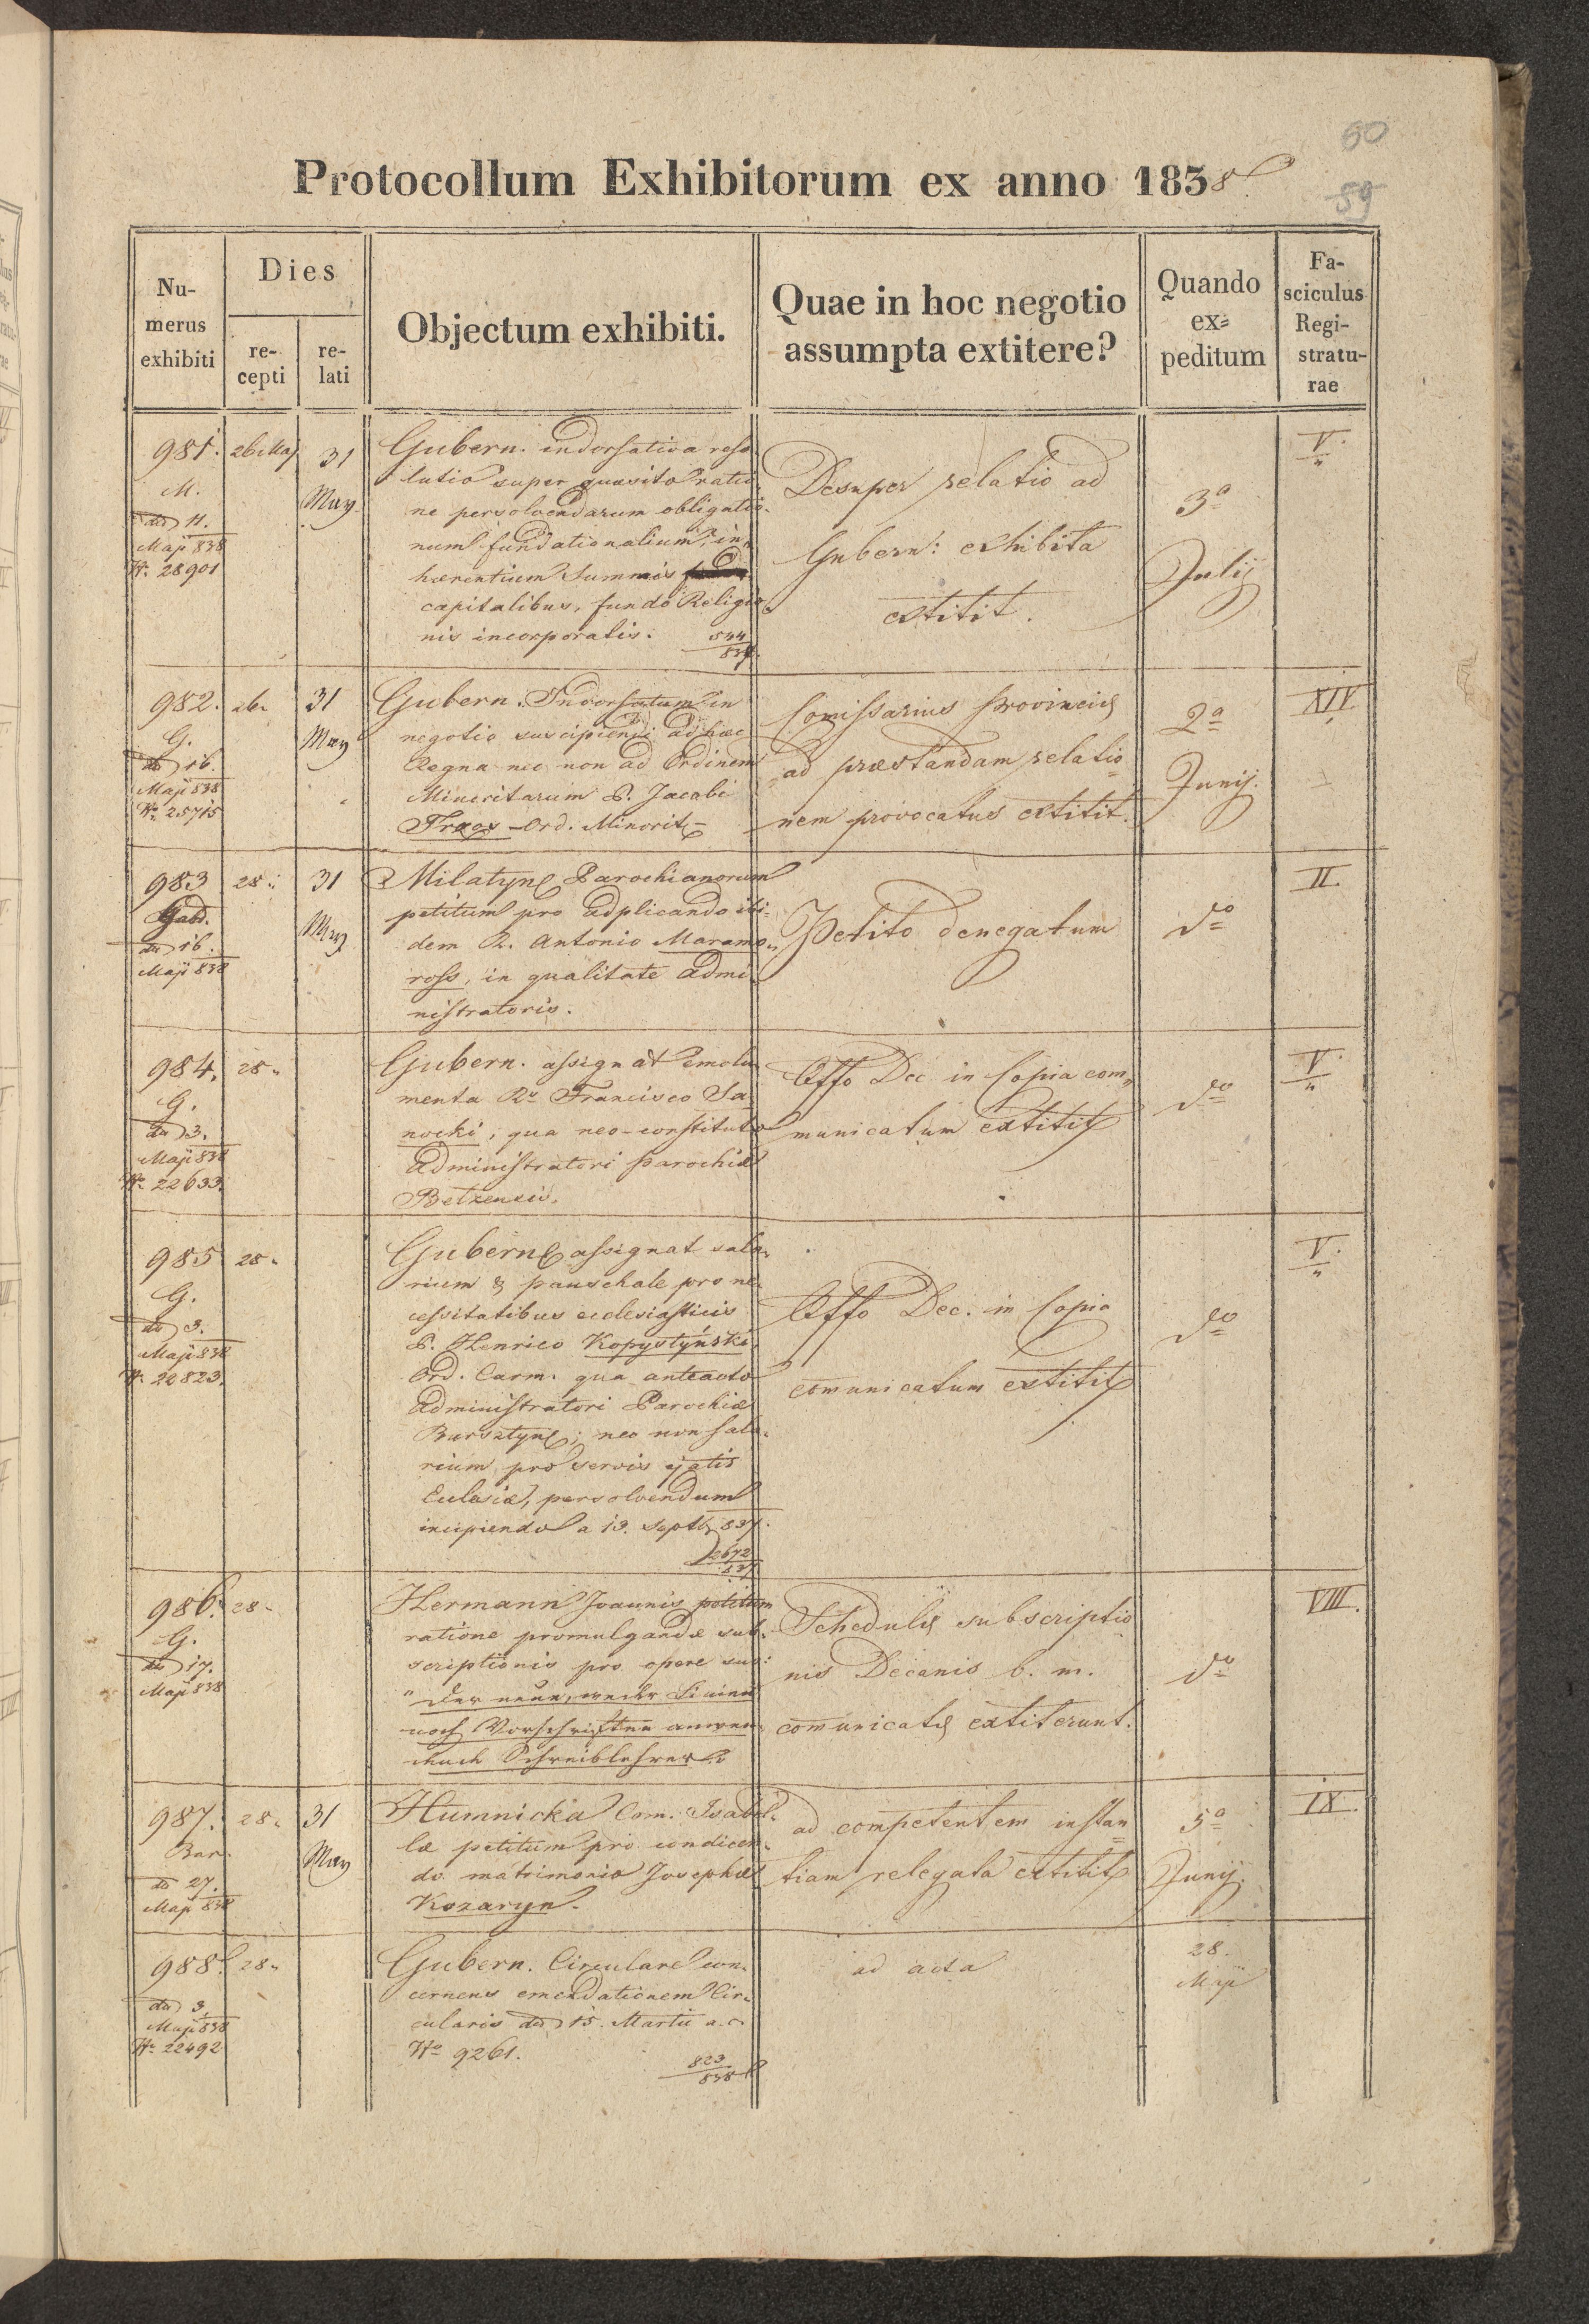 60
59
Protocollum Exhibitorum ex anno 1838.
Nu-
merus
exhibiti
Dies
re-
cepti
re-
lati
Objectum exhibiti.
Quae in hoc negotio
assumpta extitere?
Quando
ex=
peditum
Fa-
sciculus
Regi-
stratu-
rae
981.
M.
dto 11.
Maji 838
N. 28901
26 Maj
31
May
Gubern. indorsativa reso-
lutio super quaesito ratio-
ne persolvendarum obligatio-
num fundationalium, in-
haerentium Summis
capitalibus, fundo Religio-
nis incorporatis.
544
837.
Desuper relatio ad
Gubern: exhibita
extitit.
3a
Julij
V.
982.
G.
dto 16.
Maji 838
No 25715
26.
31
May
Gubern. Indorsatum in
negotio suscipiendi ad haec
Regna nec non ad Ordinem
Minoritarum P. Jacobi
Ord. Minorit.
Comissarius Provinciae
ad praestandam relatio=
nem provocatus extitit.
2a
Junij.
XIV
983
dto 16.
Maji 838
28.
31
May
Milatyn Parochianorum
petitum pro adplicando ibi-
dem R. Antonio Maramo-
ross, in qualitate admi-
nistratoris.
Petito denegatum
do
II.
984.
G.
dto 3.
Maji 838
No 22633.
28.
Gubern. assignat emolu-
menta Ro Francisco Sa-
nocki, qua neo-constituto
administratori parochiae
Betzensis.
Offo Dec. in Copia com-
municatum extitit
do
V.
985
G.
dto 3.
Maji 838
N. 22823.
28.
Gubern assignat sala-
rium & pauschale pro ne-
cessitatibus ecclesiasticis
P. Henrico Kopystyński
Ord. Carm. qua anteacto
administratori Parochiae
Bursztyn; nec non sala-
rium pro servis ejatis
Eclesiae, persolvendum
incipiendo a 13. Septb 837.
2672
837
Offo Dec. in Copia
comunicatum extitit
do
V.
986.
G.
dto 17.
Maji 838
28.
Hermann Joannis petitum
ratione promulgandae sub-
scriptionis pro opere suo:
"Der neue, weder Linien
noch Vorschriften anwen-
dende Schreiblehrer."
Schedulae subscriptio
nis Decanis b. m.
comunicatae extiterunt.
do
VIII.
987.
Bar.
do 27.
Maji 838
28.
31
May
Humnicka Com. Isabel-
lae petitum pro condicen-
do matrimonio Josephae
Kozaryn.
ad competentem instan=
tiam relegata extitit
5a
Junij.
IX.
988.
dto 3.
Maji 838
No 22492
28.
Gubern. Circulare con-
cernens emendationem Cir-
cularis dto 15. Martii a. c.
No 9261.
823
838
ad acta
28.
Maji